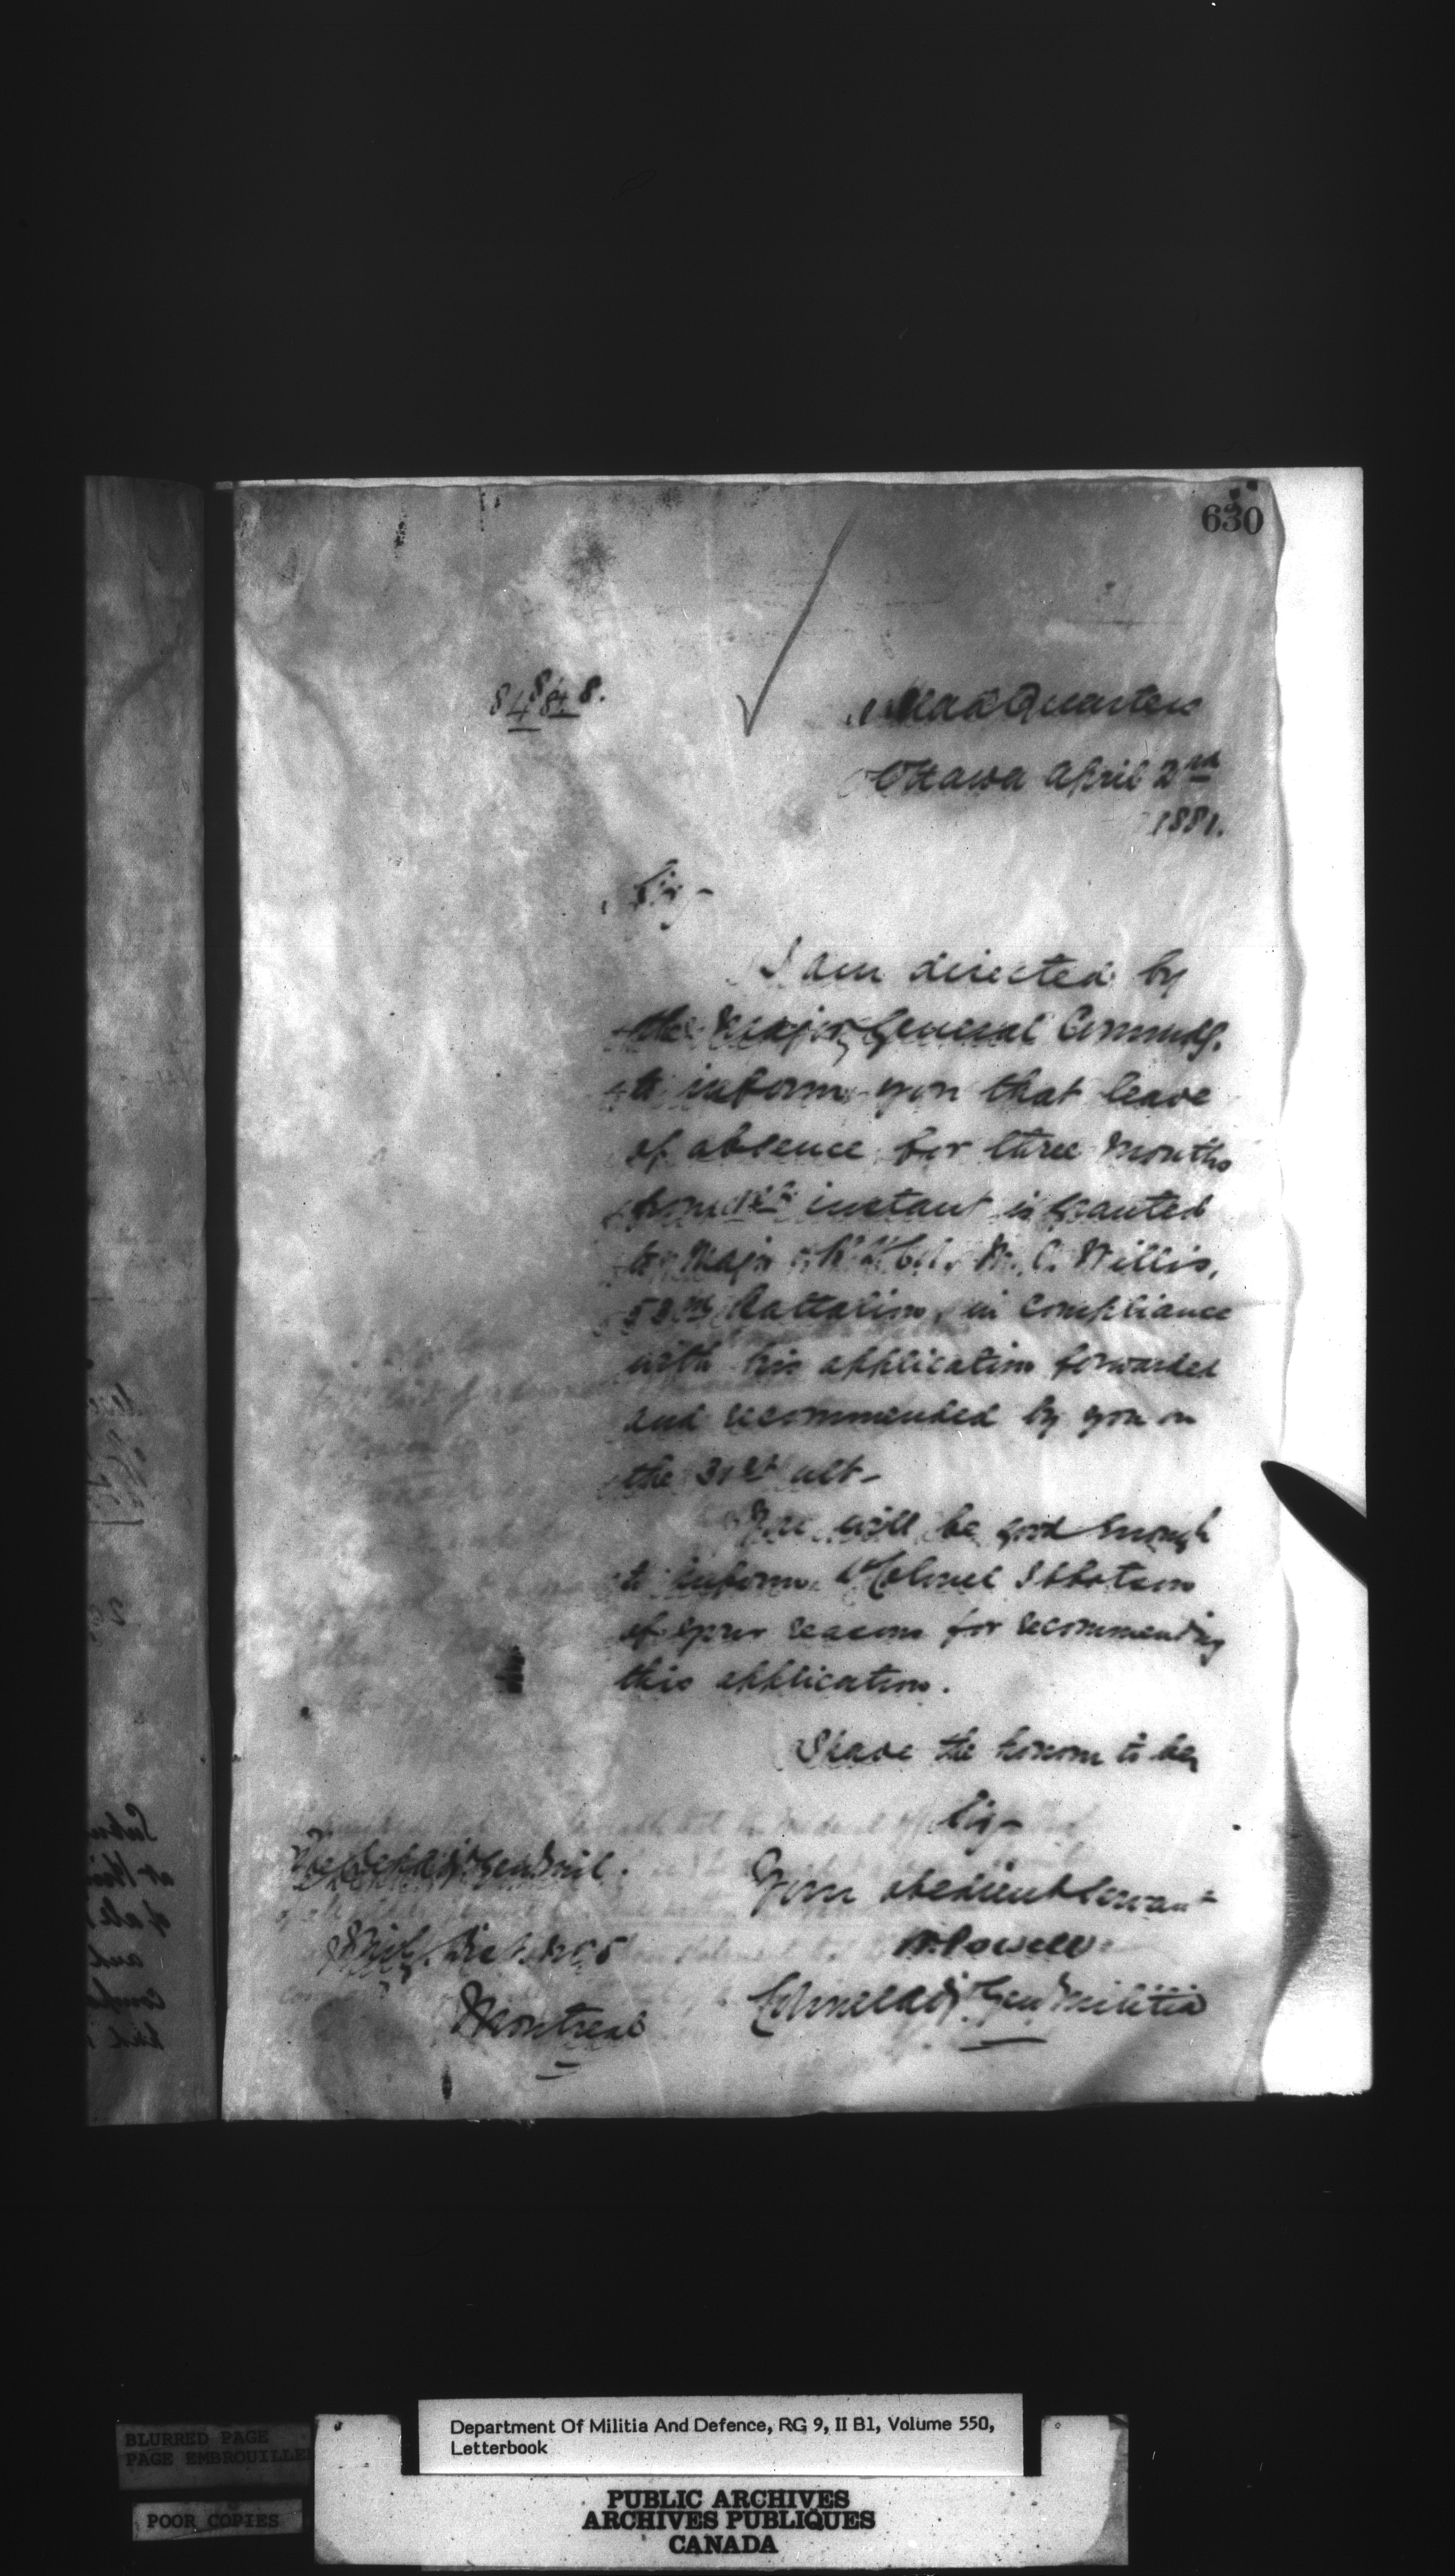 630
84848.
Head Quarters
Ottawa April 2nd
1881.
Sir,
I am directed by
the Major General Commdg.
to inform you that leave
of absence for three months
from 1st instant is granted
to Major & Bt. Lt. Col. Willis,
53rd Battalion, in compliance
with his application forwarded
and recommended by you on
the 31st ult-
You will be good enough
to inform Lt Colonel Ibbotson
of your reasons for recommending
this application.
I have the honour to be,
Sir,
Your obedient Servant
W. Powell
Colonel Adjt. Genl Militia
The Dep. Adjt Genl Mil.
Mil. Dist. No 5
Montreal
BLURRED PAGE
PAGE EMBROUILLEE
POOR COPIES
Department Of Militia And Defence, RG 9, II B1, Volume 550,
Letterbook
PUBLIC ARCHIVES
ARCHIVES PUBLIQUES
CANADA